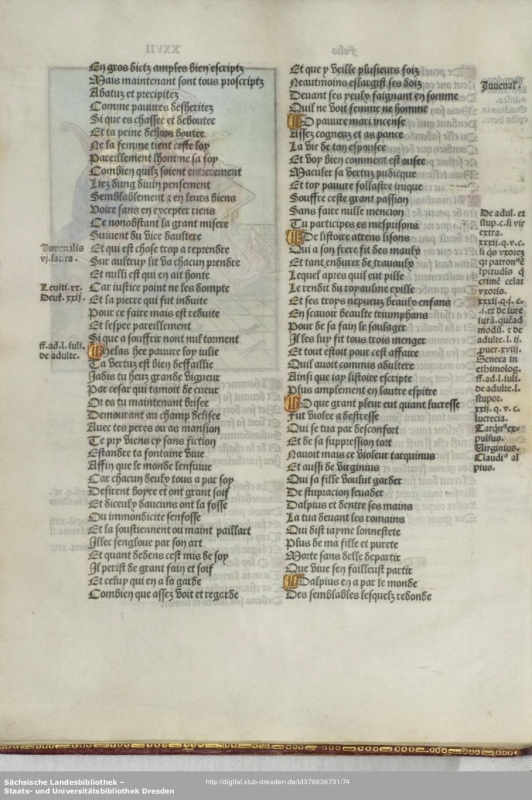 En gros dictz amples bien escriptz
Mais maintenant sont tous proscriptz
Abatuz et precipitez
Comme pauures desheritez
Si que as chassee et deboutee
Et ta peine dehors boutee
Ne la femme tient ceste loy
Pareillement lhomme ne sa foy
Combien quilz soient entierement
Liez dung diuin pensement
Semblablement a en leurs biens
Voire sans en excepter riens
Ce nonobstant la grant misere
Suiuent du vice daultere
Et qui est chose trop a reprendre
Sur aultruy lit va chacun prendre
Et nulli est qui en ait honte
Car iustice point ne les dompte
Et la pierre qui fut induite
Pour ce faire mais est reduite
Et lespee pareillement
Si que a souffrir nont nul torment
Helas hee pauure loy iulie
Ta vertuz est bien deffaillie
Jadis tu heuz grande vigueur
Par cesar qui tamoit de cueur
Or es tu maintenant brisee
Demourant au champ delisee
Auec tes peres ou as mansion
Te pry viens cy sans fiction
Estandre ta fontaine viue
Affin que le monde lensuiue
Car chacun deulx tous a par soy
Desirent boyre et ont grant soif
Et diceulx daucuns ont la fosse
Ou immondicite senfosse
Et la soustiennent ou maint paillart
Illec sengloue par son art
Et quant dedens cest mis de soy
Il perist de grant fain et soif
Et celuy qui en a la garde
Combien que assez voit et regarde
Juuenalis
vj. satira.
Leuiti. xx.
Deut. xxij.
ff. ad. l. iuli.
de adulte.
Et que y veille plusieurs foiz
Neautmoins eslargist ses doiz
Deuant ses yeulx faignant en somme
Quil ne voit femme ne homme
O pauure mari incense
Assez cogneuz et as pance
La vie de ton espousee
Et voy bien comment est ousee
Maculer sa vertuz pudicque
Et toy pauure follastre inique
Souffre ceste grant passion
Sans faire nulle mencion
Tu participes es mesprisons
De listoire atreus lisons
Qui a son frere fit des maulx
Et tant endurer de trauaulx
Lequel apres quil eut pille
Le rendit du royaulme exille
Et ses troys nepueuz beaulx enfans
En scauoir beaulte triumphans
Pour de sa fain le soulager
Il les luy fit tous trois menger
Et tout estoit pour cest affaire
Quil auoit commis adultere
Ainsi que iay listoire escripte
Plus amplement en lautre espitre
O que grant pleur eut quant lucresse
Fut violee a destresse
Qui se tua par desconfort
Et de sa suppression tort
Nauoit mais ce violeur tarquinus
Et aussi de virginius
Qui sa fille voulut garder
De stupracion leuader
Dalpius et dentre ses mains
La tua deuant les romains
Qui dist iayme lonnestete
Plus de ma fille et purete
Morte sans delle departir
Que viue sen failleust partir
Dalpius en a par le monde
Des semblables lesquelz redonde
Juuenal.
De adul. et
stup. c. si vir
extra.
xxxij. q. v. c.
crimē celat
vxoris.
xxxij. q. j. c.
.i. et de iure
modū. t de
adulte. l. ij.
puer. xviij.
Seneca in
ethimolog.
ff. ad. l. iuli.
de adulte. l.
stupor.
xxij. q. v. c.
lucrecia.
Tarqus ex-
pulsus.
Virginius.
Claudius al
pius.
Sächsische Landesbibliothek –
Staats- und Universitätsbibliothek Dresden
http://digital.slub-dresden.de/id378636731/74